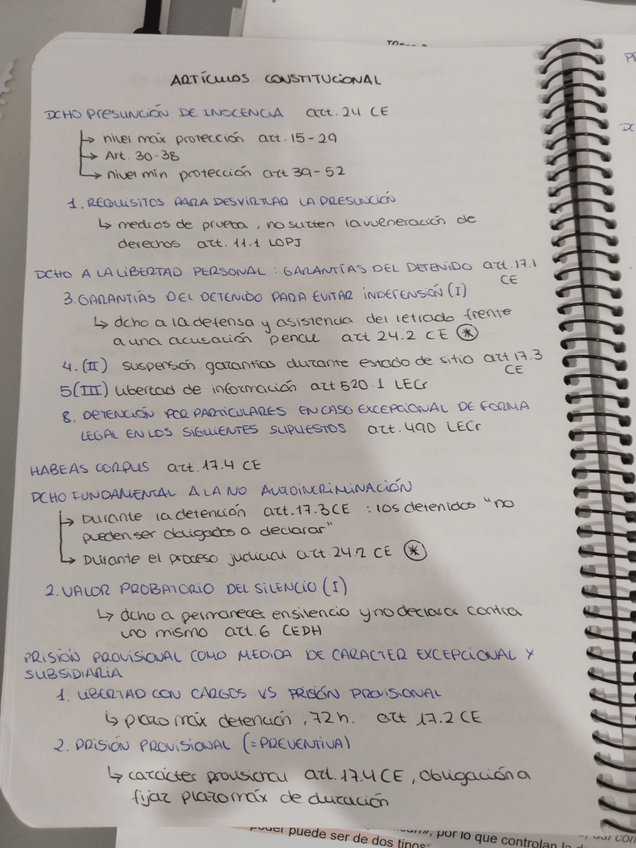 ARTÍCULOS CONSTITUCIONAL
DCHO PRESUNCIÓN DE INOCENCIA art. 24 CE
↳ nivel máx protección art. 15-29
↳ Art. 30-38
↳ nivel min protección art 39-52
1. REQUISITOS PARA DESVIRTUAR LA PRESUNCIÓN
↳ medios de prueba, no surten la vulneración de
derechos art. 11.1 LOPJ
DCHO A LA LIBERTAD PERSONAL: GARANTÍAS DEL DETENIDO art. 17.1
CE
3. GARANTÍAS DEL DETENIDO PARA EVITAR INDEFENSIÓN (I)
↳ dcho a la defensa y asistencia del letrado frente
a una acusación penal art 24.2 CE *
4. (II) suspensión garantías durante estado de sitio art 17.3
CE
5 (III) libertad de información art 520.1 LECr
8. DETENCIÓN POR PARTICULARES EN CASO EXCEPCIONAL DE FORMA
LEGAL EN LOS SIGUIENTES SUPUESTOS art. 490 LECr
HABEAS CORPUS art. 17.4 CE
DCHO FUNDAMENTAL A LA NO AUTOINCRIMINACIÓN
↳ Durante la detención art. 17.3 CE : los detenidos "no
pueden ser obligados a declarar"
↳ Durante el proceso judicial art 24.2 CE *
2. VALOR PROBATORIO DEL SILENCIO (I)
↳ dcho a permanecer en silencio y no declarar contra
uno mismo art. 6 CEDH
PRISIÓN PROVISIONAL COMO MEDIDA DE CARACTER EXCEPCIONAL Y
SUBSIDIARIA
1. LIBERTAD CON CARGOS VS PRISIÓN PROVISIONAL
↳ plazo máx detención, 72 h. art 17.2 CE
2. PRISIÓN PROVISIONAL (=PREVENTIVA)
↳ carácter provisional art. 17.4 CE, obligación a
fijar plazo máx de duración
poder puede ser de dos tipos:
por lo que controlan